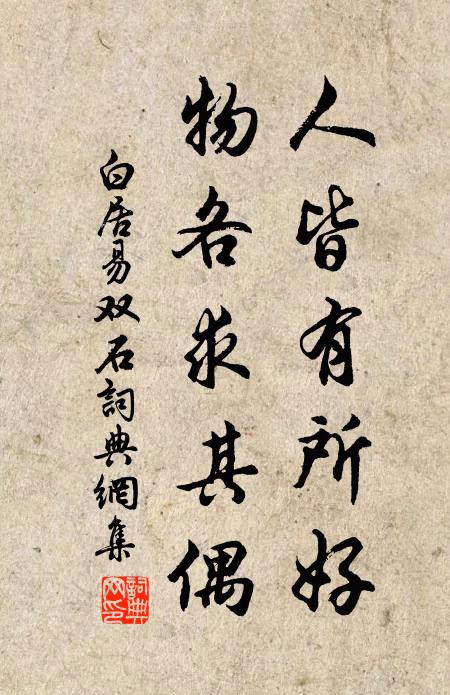 人皆有所好
物各求其偶
白居易双石詞典網集
詞典網印